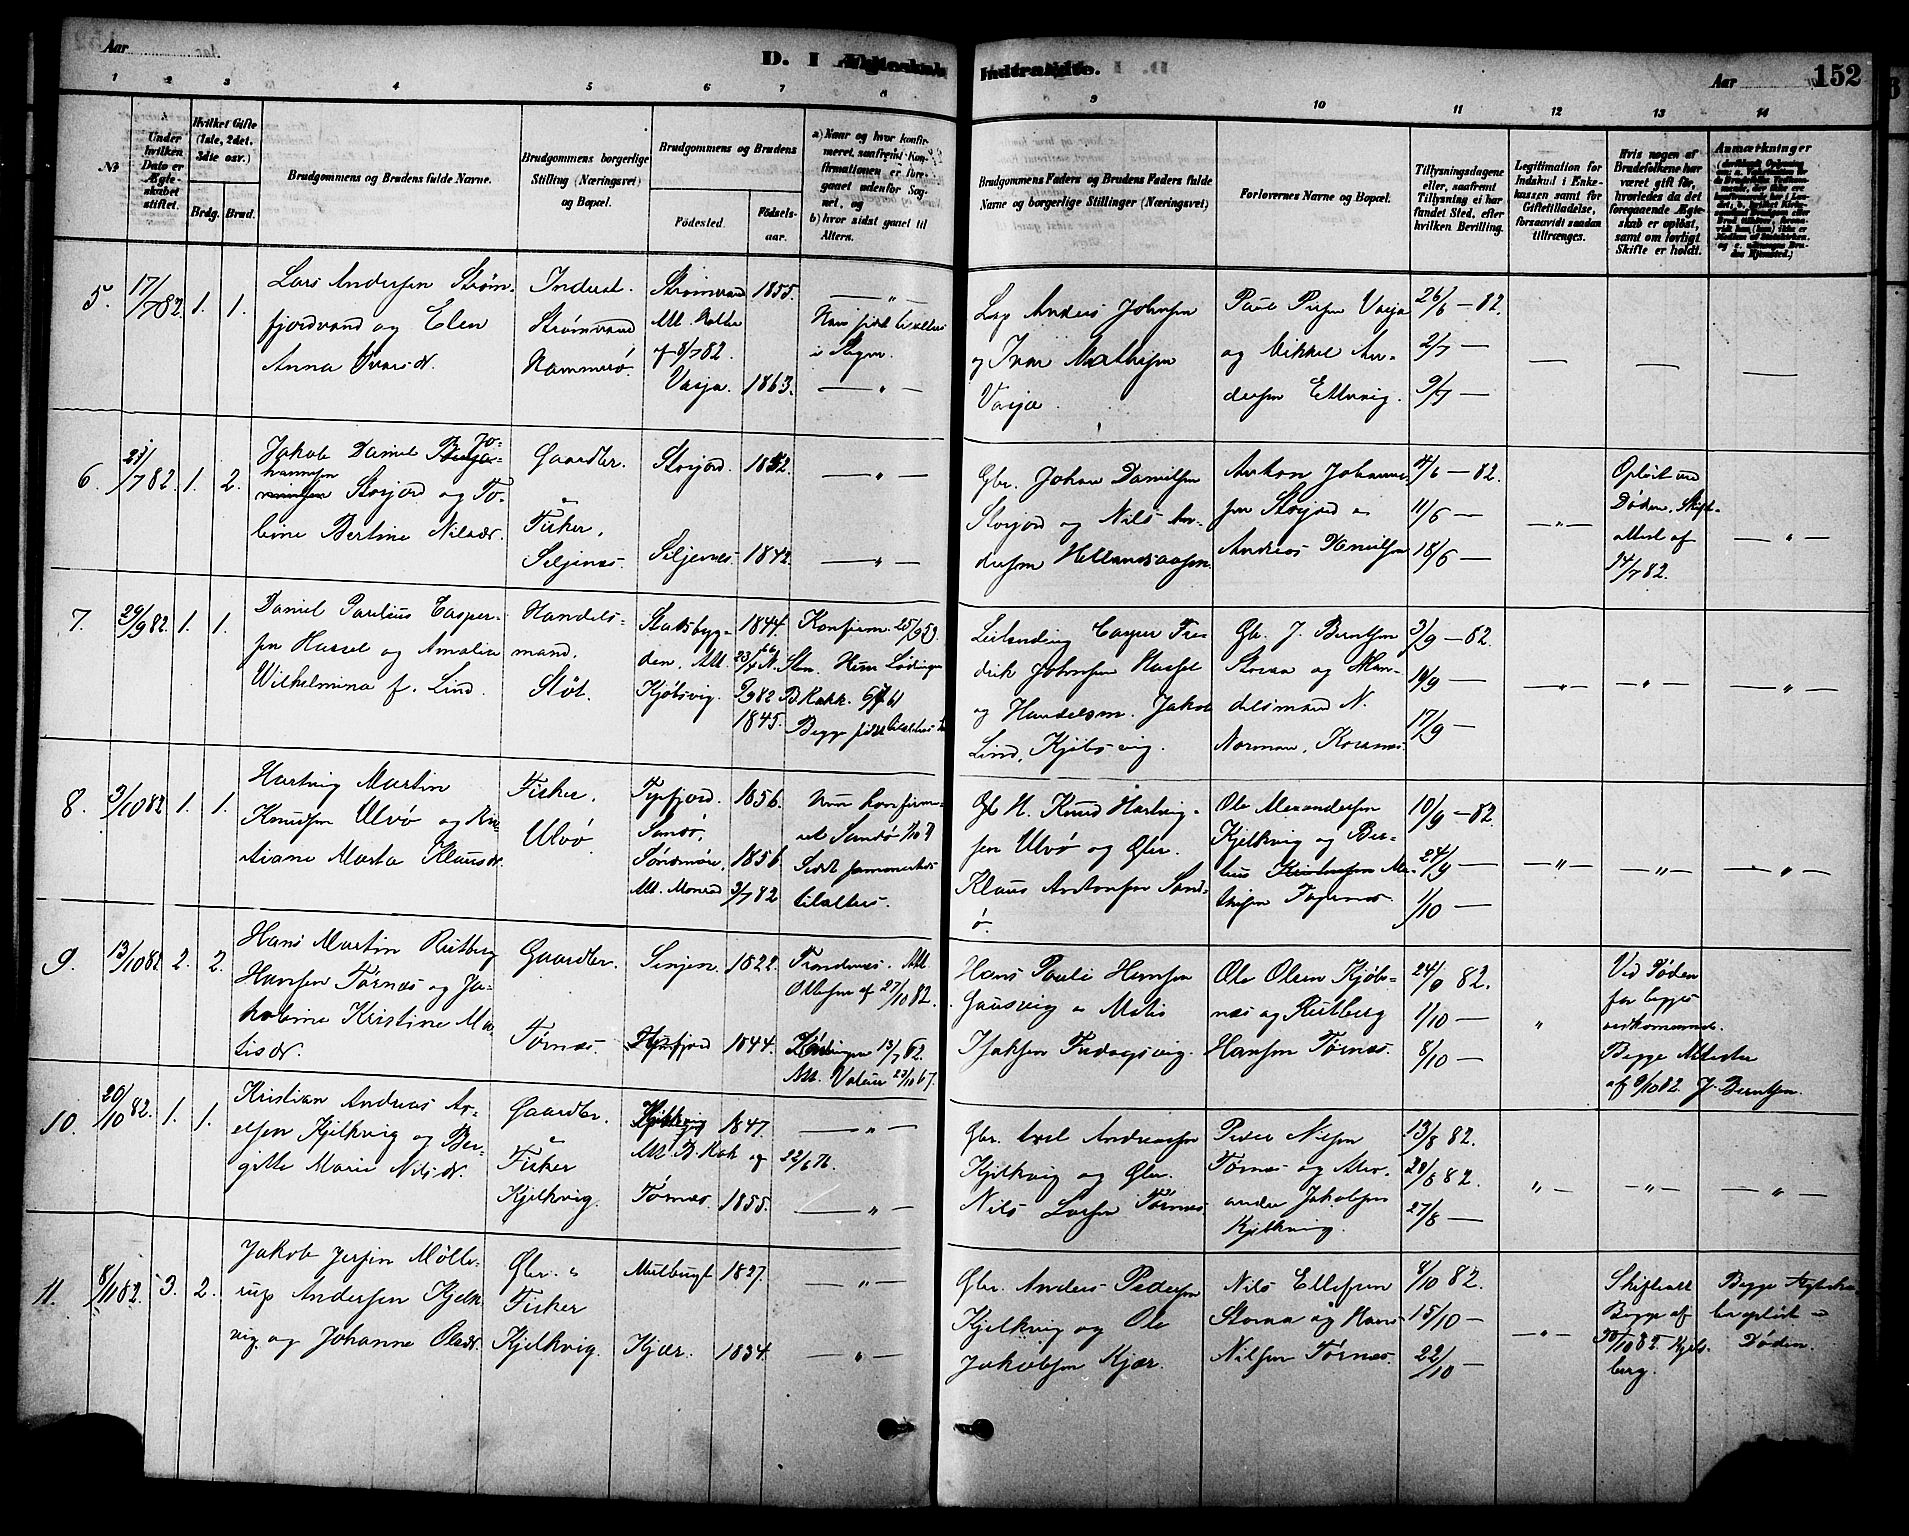 Aar
D. I Ægteskab
Indtraadte.
Aar
152
1 2 3 4 5 6 7 8
9 10 11 12 13 14
№
Under hvilken Dato er Ægteskabet stiftet.
Hvilket Gifte (1ste, 2det, 3die osv.)
Brdg. Brud.
Brudgommens og Brudens fulde Navne.
Brudgommens borgerlige Stilling (Næringsvei) og Bopæl.
Brudgommens og Brudens
Fødested.
Fødselsaar.
a) Naar og hvor konfirmeret, saafremt Konfirmationen er foregaaet udenfor Sognet, og
b) hvor sidst gaaet til Alters.
Brudgommens Faders og Brudens Faders fulde Navne og borgerlige Stillinger (Næringsvei)
Forlovernes Navne og Bopæl.
Tillysningsdagene eller, saafremt Tillysning ei har fundet Sted, efter hvilken Bevilling.
Legitimation for Indskud i Enkekassen samt for Giftetilladelse, forsaavidt saadan tiltrænges.
Hvis nogen af Brudefolkene har været gift før, hvorledes da det foregaaende Ægteskab er opløst, samt om lovligt Skifte er holdt.
Anmærkninger
5. 17/7 82. 1. 1.
Lars Andersen Strøm-
fjordvand og Elen
Anna Ivarsdr.
Inderst.
Strømvand
Hammerø.
Strømvand 1855.
7/8/82.
Vasja. 1863.
Lap Anders Johnsen
og Ivar Mathisen
Vasja.
Paul Persen Vasja
og Mikkel An-
dersen
26/6 — 82.
2/7 —
9/7 —
6. 23/7 82. 1. 2.
Jakob Daniel Jo-
hannesen
Storjord og To-
bine Bertine Nilsdr.
Gaardbr.
&
Fisker,
Seljenæs.
Storjord. 1852.
Seljenæs. 1842.
Gbr. Johan Danielsen
Storjord og Nils An-
dersen Hellandsaasen.
Anton Johanne-
sen Storjord &
Andreas Danielsen
4/6 — 82.
11/6 —
18/6 —
Opløst ved
Døden, Skift-
attest af
14/7 82.
7. 29/9 82. 1. 1.
Daniel Paulius Casper-
sen Hassel og Amalia
Wilhelmina f. Lind.
Handels-
mand,
Støt.
Stadsbyg-
den.
Kjøbsvig.
1844.
1845.
Konfirm. 25/9 59.
Hun Lødingen
Begge sidst tilalters
Leilending Casper Fre-
drik Johnsen Hassel
og Handelsm. Jakob
Lind, Kjøbsvig.
Gb. J. Berntsen
Storaa og Han-
delsmand N.
Norman, Korsnæs.
3/9 — 82.
10/9 —
17/9 —
8. 3/10 82 1. 1.
Hartvig Martin
Knudsen Ulvø og Kri-
stiane Marta Klausdr.
Fisker,
Ulvø.
1856.
Sandø,
Søndmøre, 1856.
3/7 82
Hun konfirme-
ret Sandø
Sidst sammesteds
tilalters.
Gb. H. Knud Hartvig-
sen Ulvø og Gbr.
Klaus Antonsen Sand-
ø.
Ole Alexandersen
Kjelkvig og Ber-
teus Kristensen Ma-
thisen
10/9 — 82.
24/9 —
1/10 —
9. 13/10 82 2. 2.
Hans Martin Rutberg
Hansen Tørnæs og Ja-
kobine Kristine Ma-
tisdr.
Gaardbr.
Tørnæs.
Senjen. 1822.
1844.
Trondenæs. Att.
27/10 82.
Lødingen 13/7 62.
Hans Pauli Hansen
Gausvig & Matis
Isaksen
Ole Olsen Kjøb-
næs og Rutberg
Hansen Tørnæs.
24/9 82.
1/10 —
8/10 —
Ved Døden
for begges
vedkommende.
Begge Attester
af 9/10 82 J. Berntsen.
10. 20/10 82. 1. 1.
Kristian Andreas Ax-
elsen Kjelkvig og Ber-
gitte Marie Nilsdr.
Gaardbr.
&
Fisker
Kjelkvig.
Kjelkvig 1847.
22/6 76.
Tørnæs. 1855.
Gbr. Axel Andreassen
Kjelkvig og Gbr.
Nils Larsen Tørnæs
Peder Nilsen
Tørnæs og Alex-
ander Jakobsen
Kjelkvig.
13/8 82.
20/8 82.
27/8 —
11. 8/11 82. 3. 2.
Jakob Jessen Mølle-
rup Andersen Kjelk-
vig og Johanne Olsdr.
Gbr. &
Fisker
Kjelkvig.
1827.
Kjær. 1834.
Gbr. Anders Pedersen
Kjelkvig og Ole
Jakobsen Kjær.
Nils Ellefsen
Storaa og Hans
Nilsen Tørnæs.
8/10 82.
15/10 —
22/10 —
Skifteatt.
Begge af
30/10 82
Begge Ægteska-
ber opløst v.
Døden.